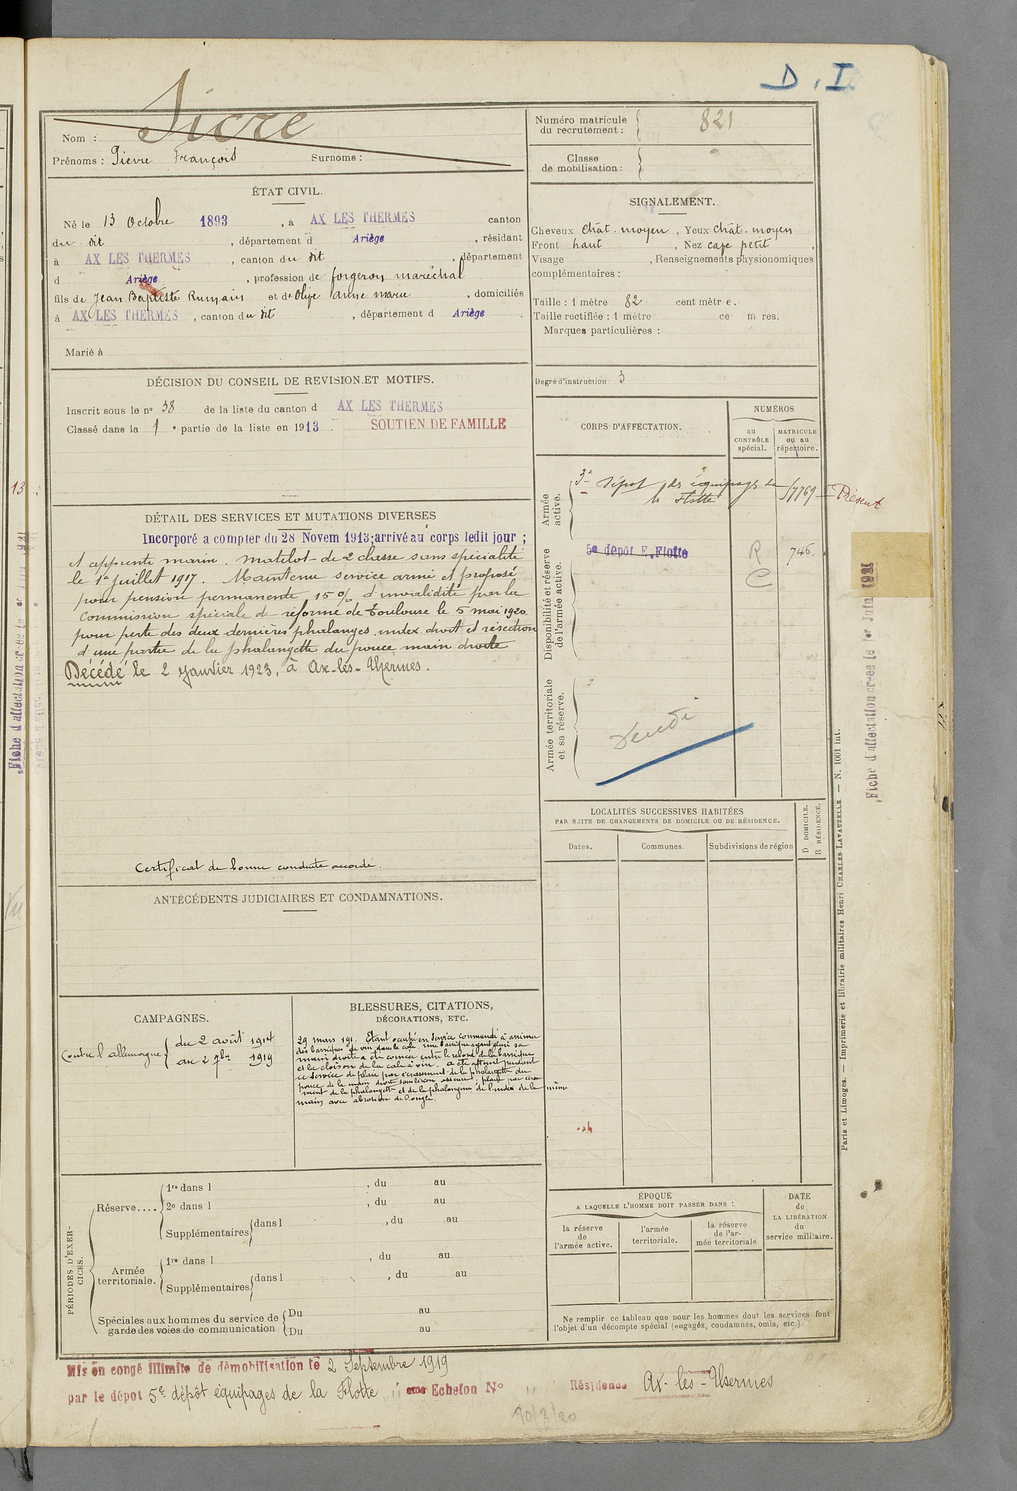 D. I.
Nom : Sicre
Prénoms : Pierre François Surnoms :
Numéro matricule du recrutement : 821
Classe de mobilisation :
ÉTAT CIVIL.
Né le 13 Octobre 1893, à AX LES THERMES canton
du dit, département d Ariège, résidant
à AX LES THERMES, canton du dit, département
d Ariège, profession de forgeron maréchal
fils de Jean Baptiste Rumain et de Olive Anne marie, domiciliés
à AX LES THERMES, canton du dit, département d Ariège.
Marié à
SIGNALEMENT.
Cheveux chât. moyen, Yeux chât. moyen
Front haut, Nez cave petit,
Visage , Renseignements physionomiques
complémentaires :
Taille : 1 mètre 82 centimètres.
Taille rectifiée : 1 mètre ce m res.
Marques particulières :
Degré d'instruction : 3
DÉCISION DU CONSEIL DE REVISION ET MOTIFS.
Inscrit sous le n° 38 de la liste du canton d AX LES THERMES
Classé dans la 1 e partie de la liste en 1913. SOUTIEN DE FAMILLE
CORPS D'AFFECTATION.
NUMÉROS
au CONTRÔLE spécial.
MATRICULE ou au répertoire.
Armée active.
3e Dépôt des équipages de
la Flotte
17769
Présent
13
DÉTAIL DES SERVICES ET MUTATIONS DIVERSES
Incorporé a compter du 28 Novem 1913; arrivé au corps ledit jour ;
et apprenti marin. Matelot de 2 classe sans spécialité
le 1er juillet 1917. Maintenu service armé et proposé
pour pension permanente, 15 % d'invalidité par la
Commission spéciale de réforme de Toulouse le 5 mai 1920
pour perte des deux dernières phalanges index droit et résection
d'une partie de la phalangette du pouce main droite
Décédé le 2 Janvier 1923, à Ax-les-Thermes.
Certificat de bonne conduite accordé.
Disponibilité et réserve de l'armée active.
5e dépôt E. Flotte
R
C
746
Armée territoriale et sa réserve.
Fiche d'affectation créée le 1er Juin 1921
LOCALITÉS SUCCESSIVES HABITÉES
PAR SUITE DE CHANGEMENTS DE DOMICILE OU DE RÉSIDENCE.
Dates.
Communes.
Subdivisions de région
D DOMICILE.
R RÉSIDENCE.
ANTÉCÉDENTS JUDICIAIRES ET CONDAMNATIONS.
CAMPAGNES.
Contre l'allemagne
du 2 août 1914
au 2 7bre 1919
BLESSURES, CITATIONS,
DÉCORATIONS, ETC.
29 mars 191. Etant occupé en service commandé à arrimer
des barriques de vin dans la cale une barrique ayant glissé sa
main droite a été coincée entre le rebord de la barrique
et la cloison de la cale à vin. a été atteint pendant
ce service de plaie par écrasement de la phalangette du
pouce de la main droite
ment de la phalangette et de la phalangine de l'index de la même
main avec abrasion de l'ongle.
PÉRIODES D'EXERCICES.
Réserve....
1re dans l , du au
2e dans l , du au
Supplémentaires dans l , du au
Armée territoriale.
1re dans l , du au
Supplémentaires dans l , du au
Spéciales aux hommes du service de garde des voies de communication
Du au
Du au
ÉPOQUE
A LAQUELLE L'HOMME DOIT PASSER DANS :
la réserve de l'armée active.
l'armée territoriale.
la réserve de l'armée territoriale
DATE de LA LIBÉRATION du service militaire.
Ne remplir ce tableau que pour les hommes dont les services font
l'objet d'un décompte spécial (engagés, condamnés, omis, etc.).
Paris et Limoges. — Imprimerie et librairie militaires Henri CHARLES LAVAUZELLE. — N. 1001 int.
Mis en congé illimité de démobilisation le 2 Septembre 1919
par le dépôt 5e dépôt équipages de la Flotte " eme Echelon N° " Résidence Ax-les-Thermes